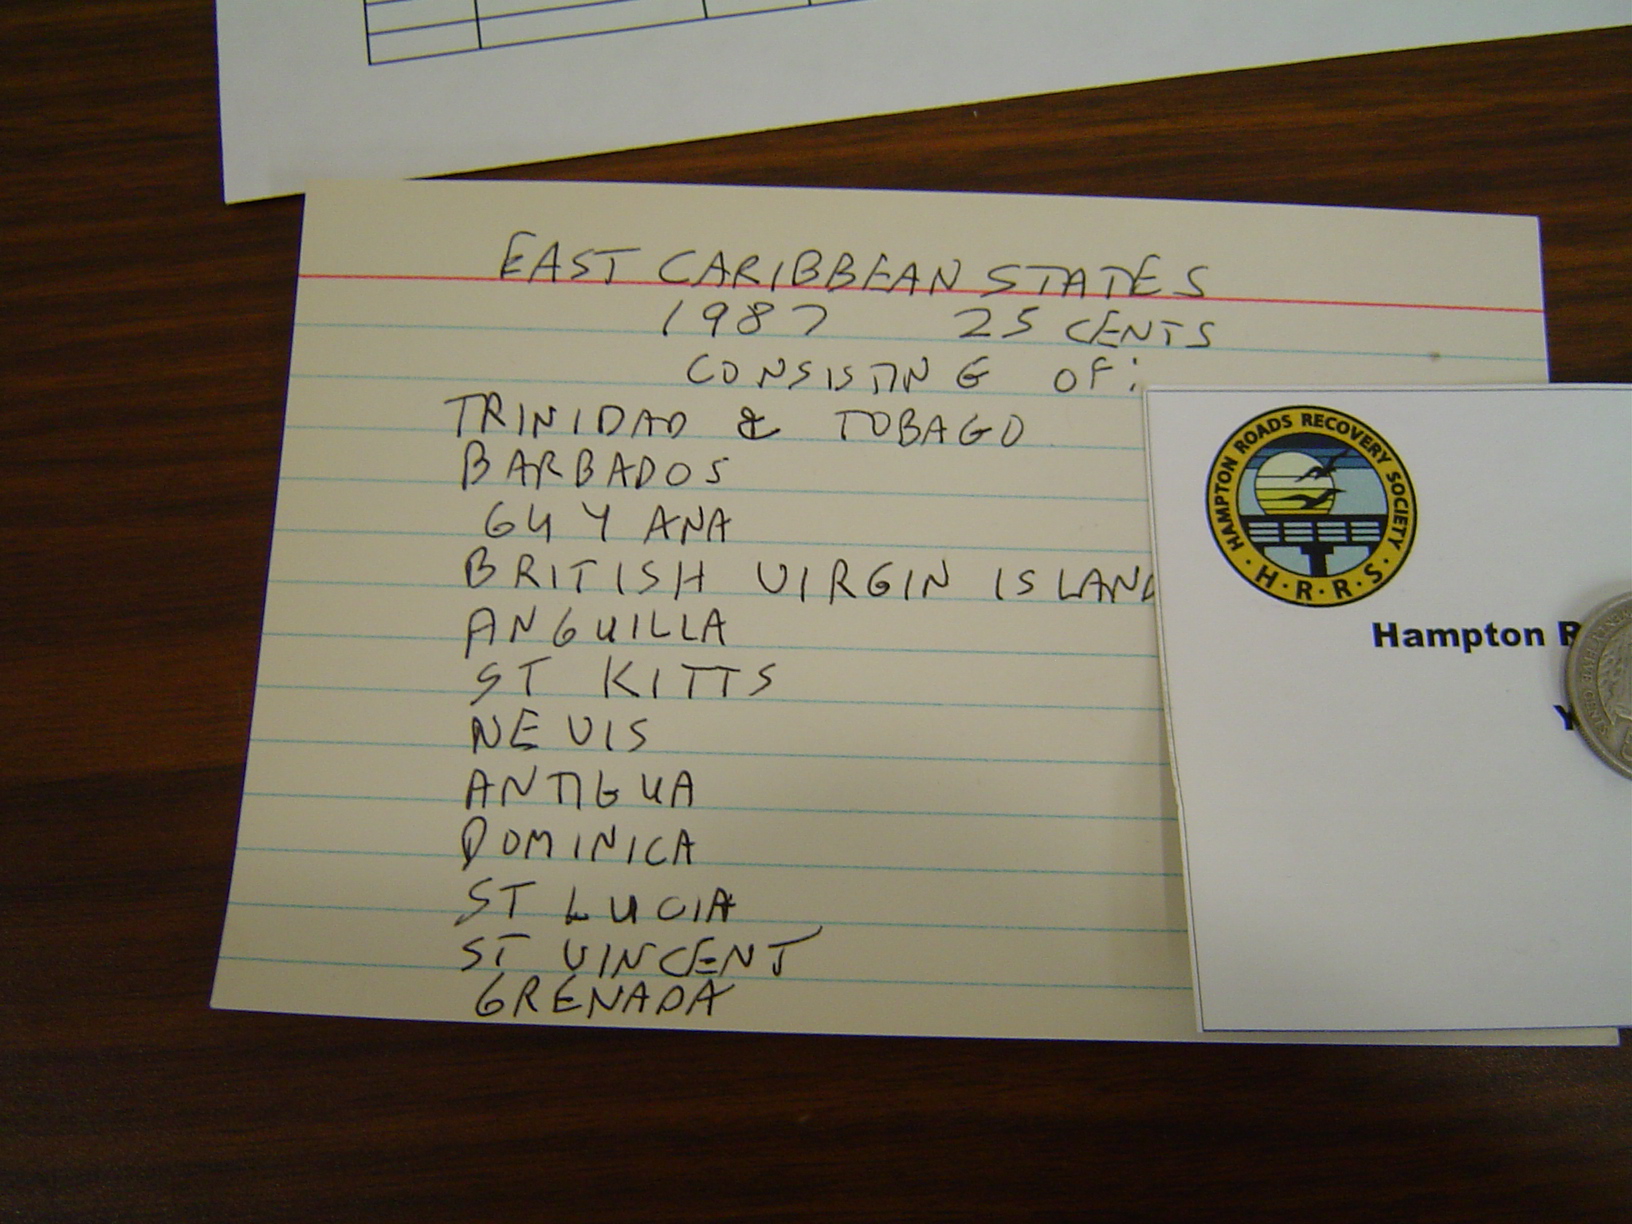 EAST CARIBBEAN STATES
1987 25 CENTS
CONSISTING OF:
TRINIDAD & TOBAGO
BARBADOS
GUYANA
BRITISH VIRGIN ISLAND
ANGUILLA
ST KITTS
NEVIS
ANTIGUA
DOMINICA
ST LUCIA
ST VINCENT
GRENADA
HAMPTON ROADS RECOVERY SOCIETY
H.R.R.S.
Hampton R
Y